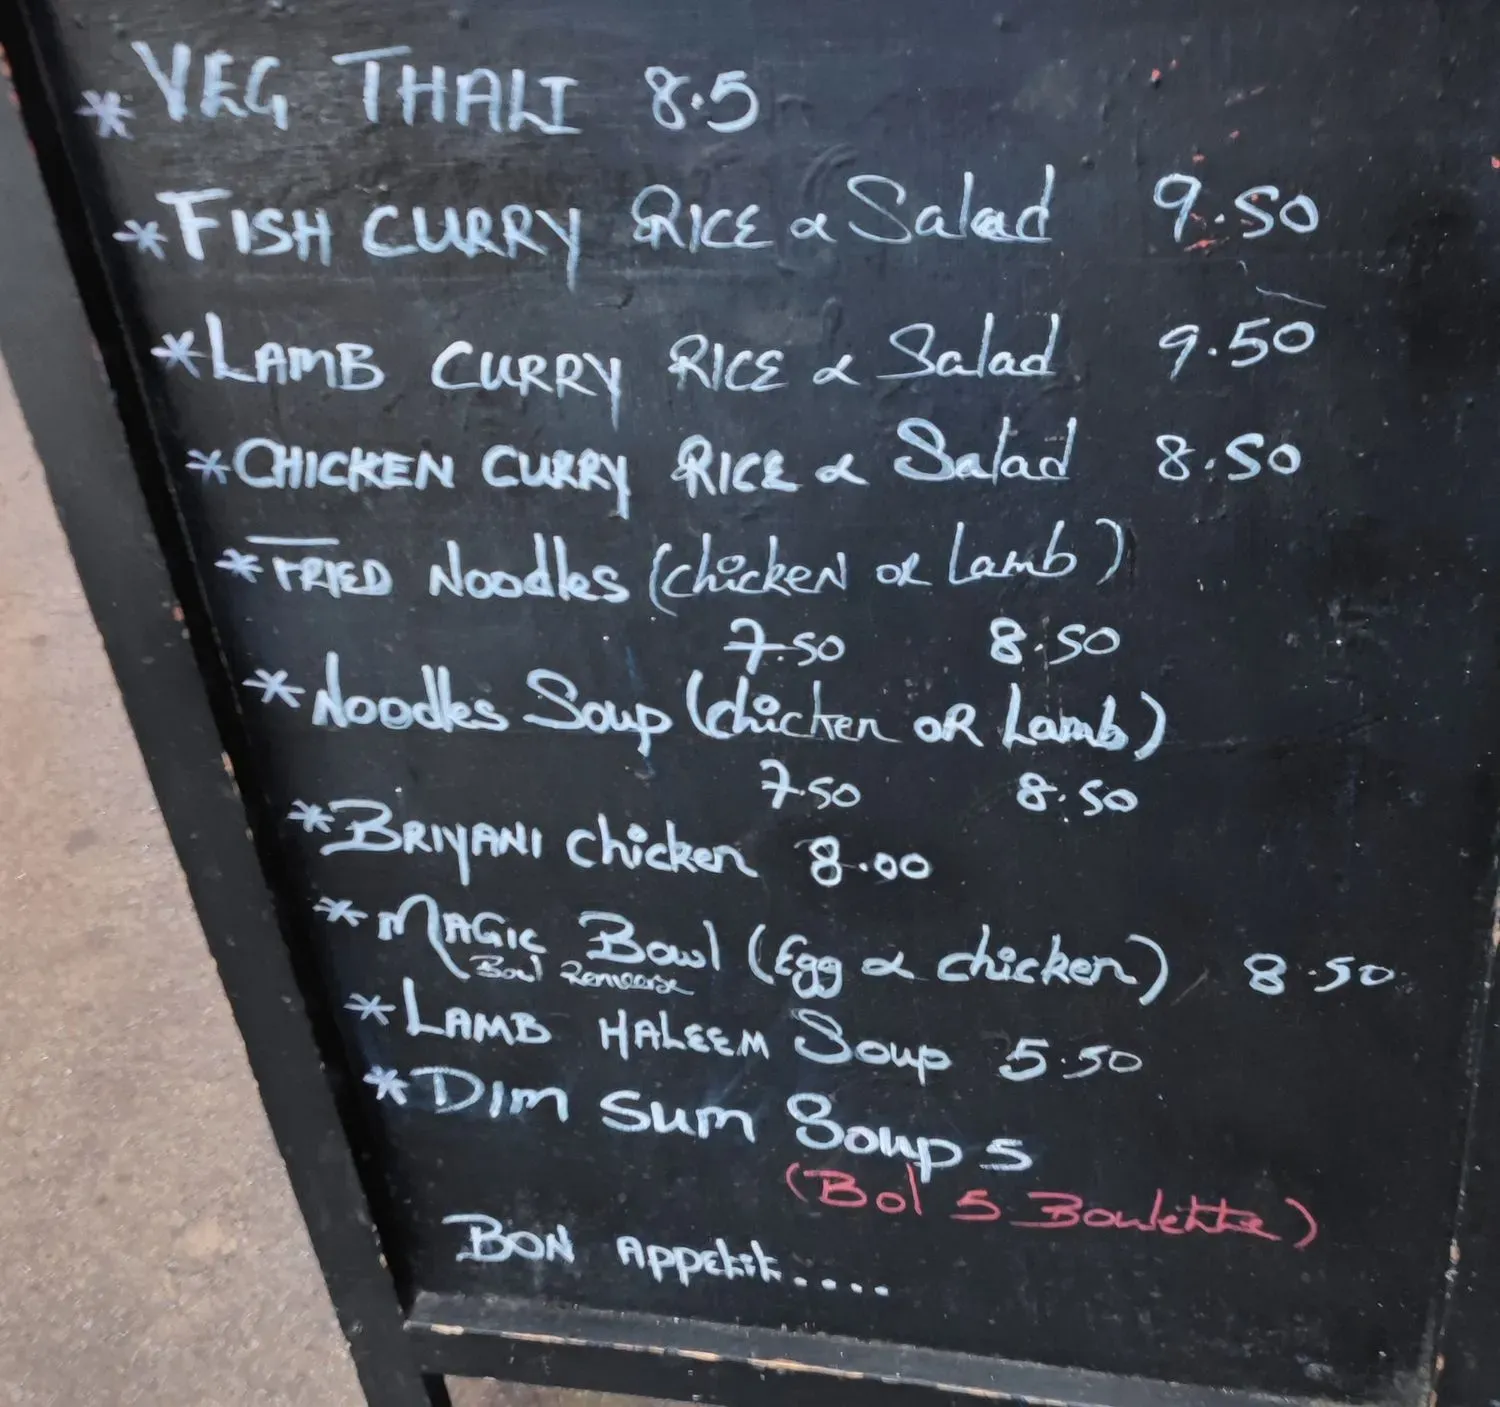 * VEG THALI 8.5
* FISH CURRY RICE & Salad 9.50
* LAMB CURRY RICE & Salad 9.50
* CHICKEN CURRY RICE & Salad 8.50
* FRIED Noodles (chicken or Lamb)
7.50 8.50
* Noodles Soup (chicken OR Lamb)
7.50 8.50
* BRIYANI chicken 8.00
* MAGIC Bowl (Egg & chicken) 8.50
Bowl Renverse
* LAMB HALEEM Soup 5.50
* DIM SUM Soup 5
(Bol 5 Boulette)
BON Appetit....